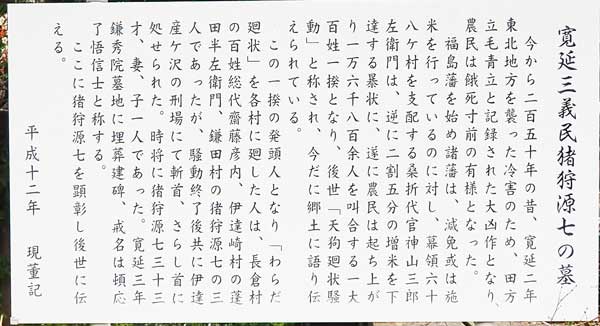 寛延三義民猪狩源七の墓
今から二百五十年の昔、寛延二年
東北地方を襲った冷害のため、田方
立毛青立と記録された大凶作となり、
農民は餓死寸前の有様となった。
福島藩を始め諸藩は、減免或は施
米を行っているのに対し、幕領六十
八ケ村を支配する桑折代官神山三郎
左衛門は、逆に二割五分の増米を下
達する暴状に、遂に農民は起ち上が
り一万六千八百余人を叫合する一大
百姓一揆となり、後世「天狗廻状騒
動」と称され、今だに郷土に語り伝
えられている。
この一揆の発頭人となり「わらだ
廻状」を各村に廻した人は、長倉村
の百姓総代齋藤彦内、伊達崎村の蓬
田半左衛門、鎌田村の猪狩源七の三
人であったが、騒動終了後共に伊達
産ケ沢の刑場にて斬首、さらし首に
処せられた。時将に猪狩源七三十三
才、妻、子一人であった。寛延三年
鎌秀院墓地に埋葬建碑、戒名は頓応
了悟信士と称する。
ここに猪狩源七を顕彰し後世に伝
える。
平成十二年 現董記